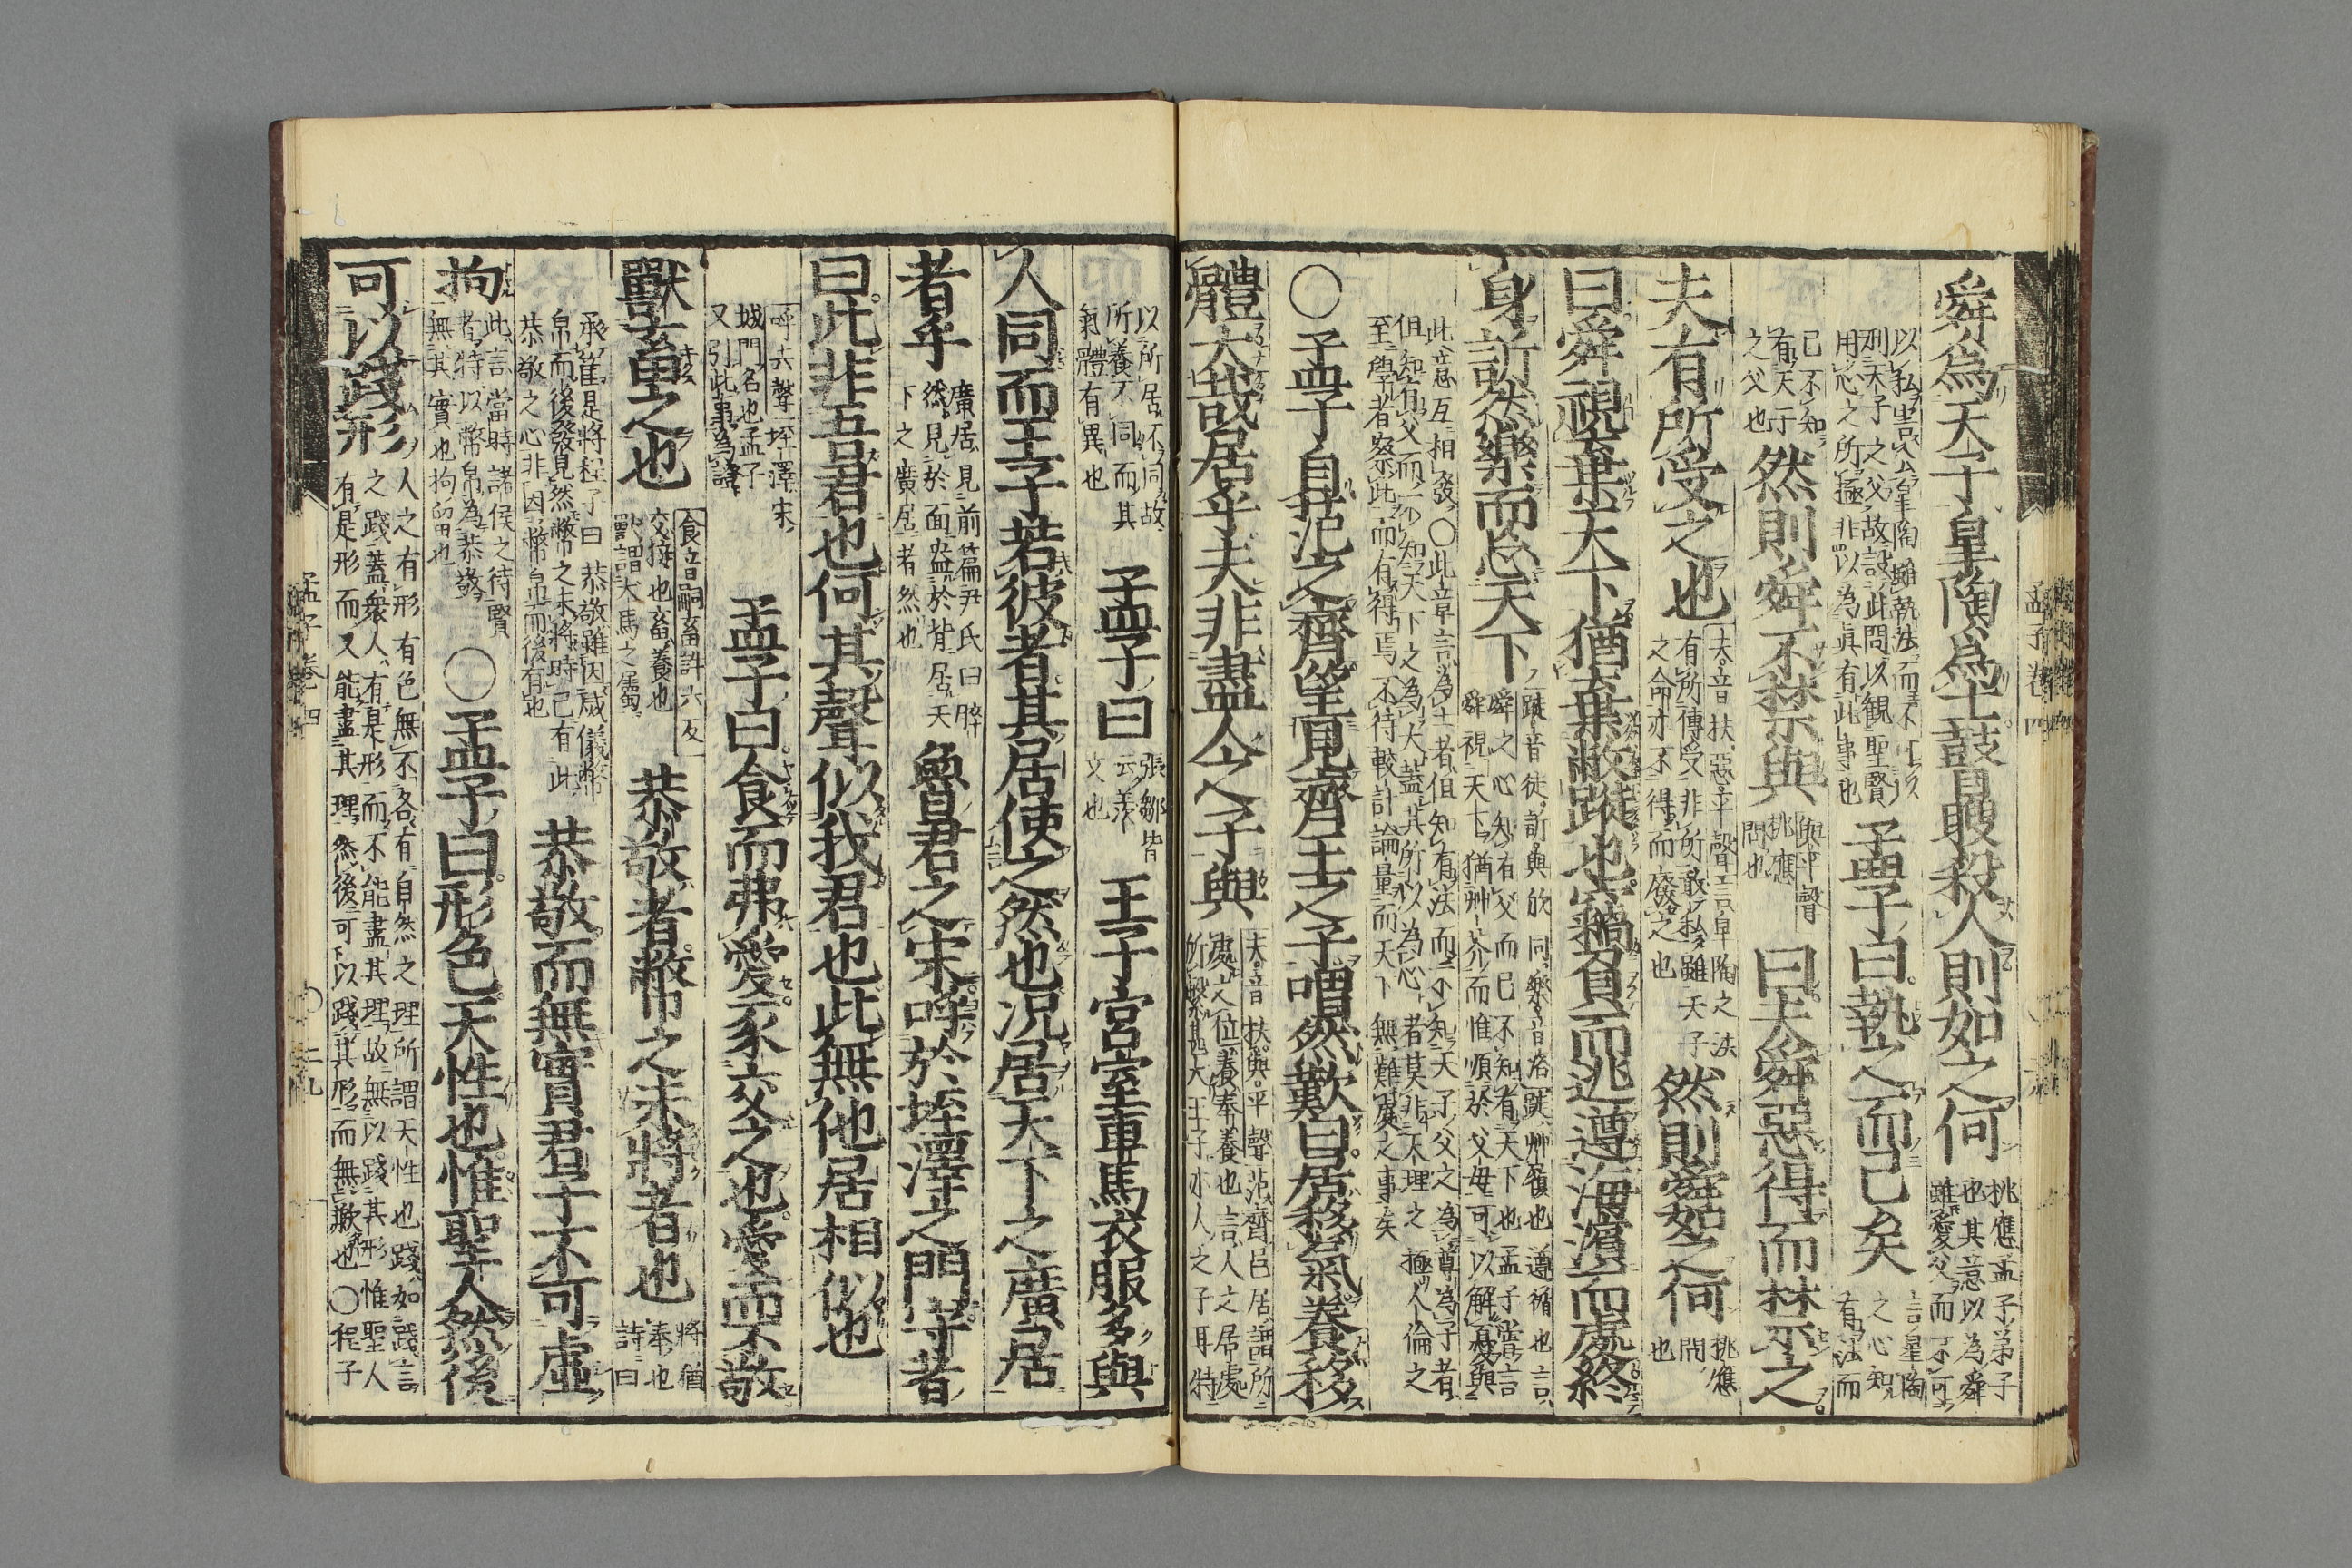 舜為天子皐陶為士瞽瞍殺人則如之何
桃應孟子弟子
也其意以為舜
雖愛父而不可
以私害公皐陶雖執法而不可以
刑天子之父故設此問以觀聖賢
用心之所極非以為眞有此事也
孟子曰執之而已矣
言皐陶
之心知
有法而
已不知
有天子
之父也
然則舜不禁與
與平聲
桃應
問也
曰夫舜惡得而禁之
夫有所受之也
夫音扶惡平聲言皐陶之法
有所傳受非所敢私雖天子
之命亦不得而廢之也
然則舜如之何
桃應
問
也
曰舜視棄天下猶棄敝蹝也竊負而逃遵海濱而處終
身訢然樂而忘天下
蹝音徙訢與欣同樂音洛蹝草履也遵循也言
舜之心知有父而已不知有天下也孟子嘗言
舜視天下猶草芥而惟順於父母可以解憂與
此意互相發○此章言為士者但知有法而不知天子父之為尊為子者
但知有父而不知天下之為大蓋其所以為心者莫非天理之極人倫之
至學者察此而有得焉不待較計論量而天下無難處之事矣
○孟子自范之齊望見齊王之子喟然歎曰居移氣養移
體大哉居乎夫非盡人之子與
夫音扶與平聲范齊邑居謂所
處之位養奉養也言人之居處
所繫甚大王子亦人之子耳特
以所居不同故
所養不同而其
氣體有異也
孟子曰
張鄒皆
云羨
文也
王子宮室車馬衣服多與
人同而王子若彼者其居使之然也況居天下之廣居
者乎
廣居見前篇尹氏曰睟
然見於面盎於背居天
下之廣居者然也
魯君之宋呼於垤澤之門守者
曰此非吾君也何其聲似我君也此無他居相似也
呼去聲垤澤宋
城門名也孟子
又引此事為證
孟子曰食而弗愛豕交之也愛而不敬
獸畜之也
食音嗣畜許六反
交接也畜養也
獸謂犬馬之屬
恭敬者幣之未將者也
將猶
奉也
詩曰
承筐是將程子曰恭敬雖因威儀幣
帛而後發見然幣之未將時已有此
恭敬之心非因幣帛而後有也
恭敬而無實君子不可虛
拘
此言當時諸侯之待賢
者特以幣帛為恭敬
無其實也拘留也
○孟子曰形色天性也惟聖人然後
可以踐形
人之有形有色無不各有自然之理所謂天性也踐如踐言
之踐蓋衆人有是形而不能盡其理故無以踐其形惟聖人
有是形而又能盡其理然後可以踐其形而無歉也○程子
孟子卷四
孟子卷十四
○二九